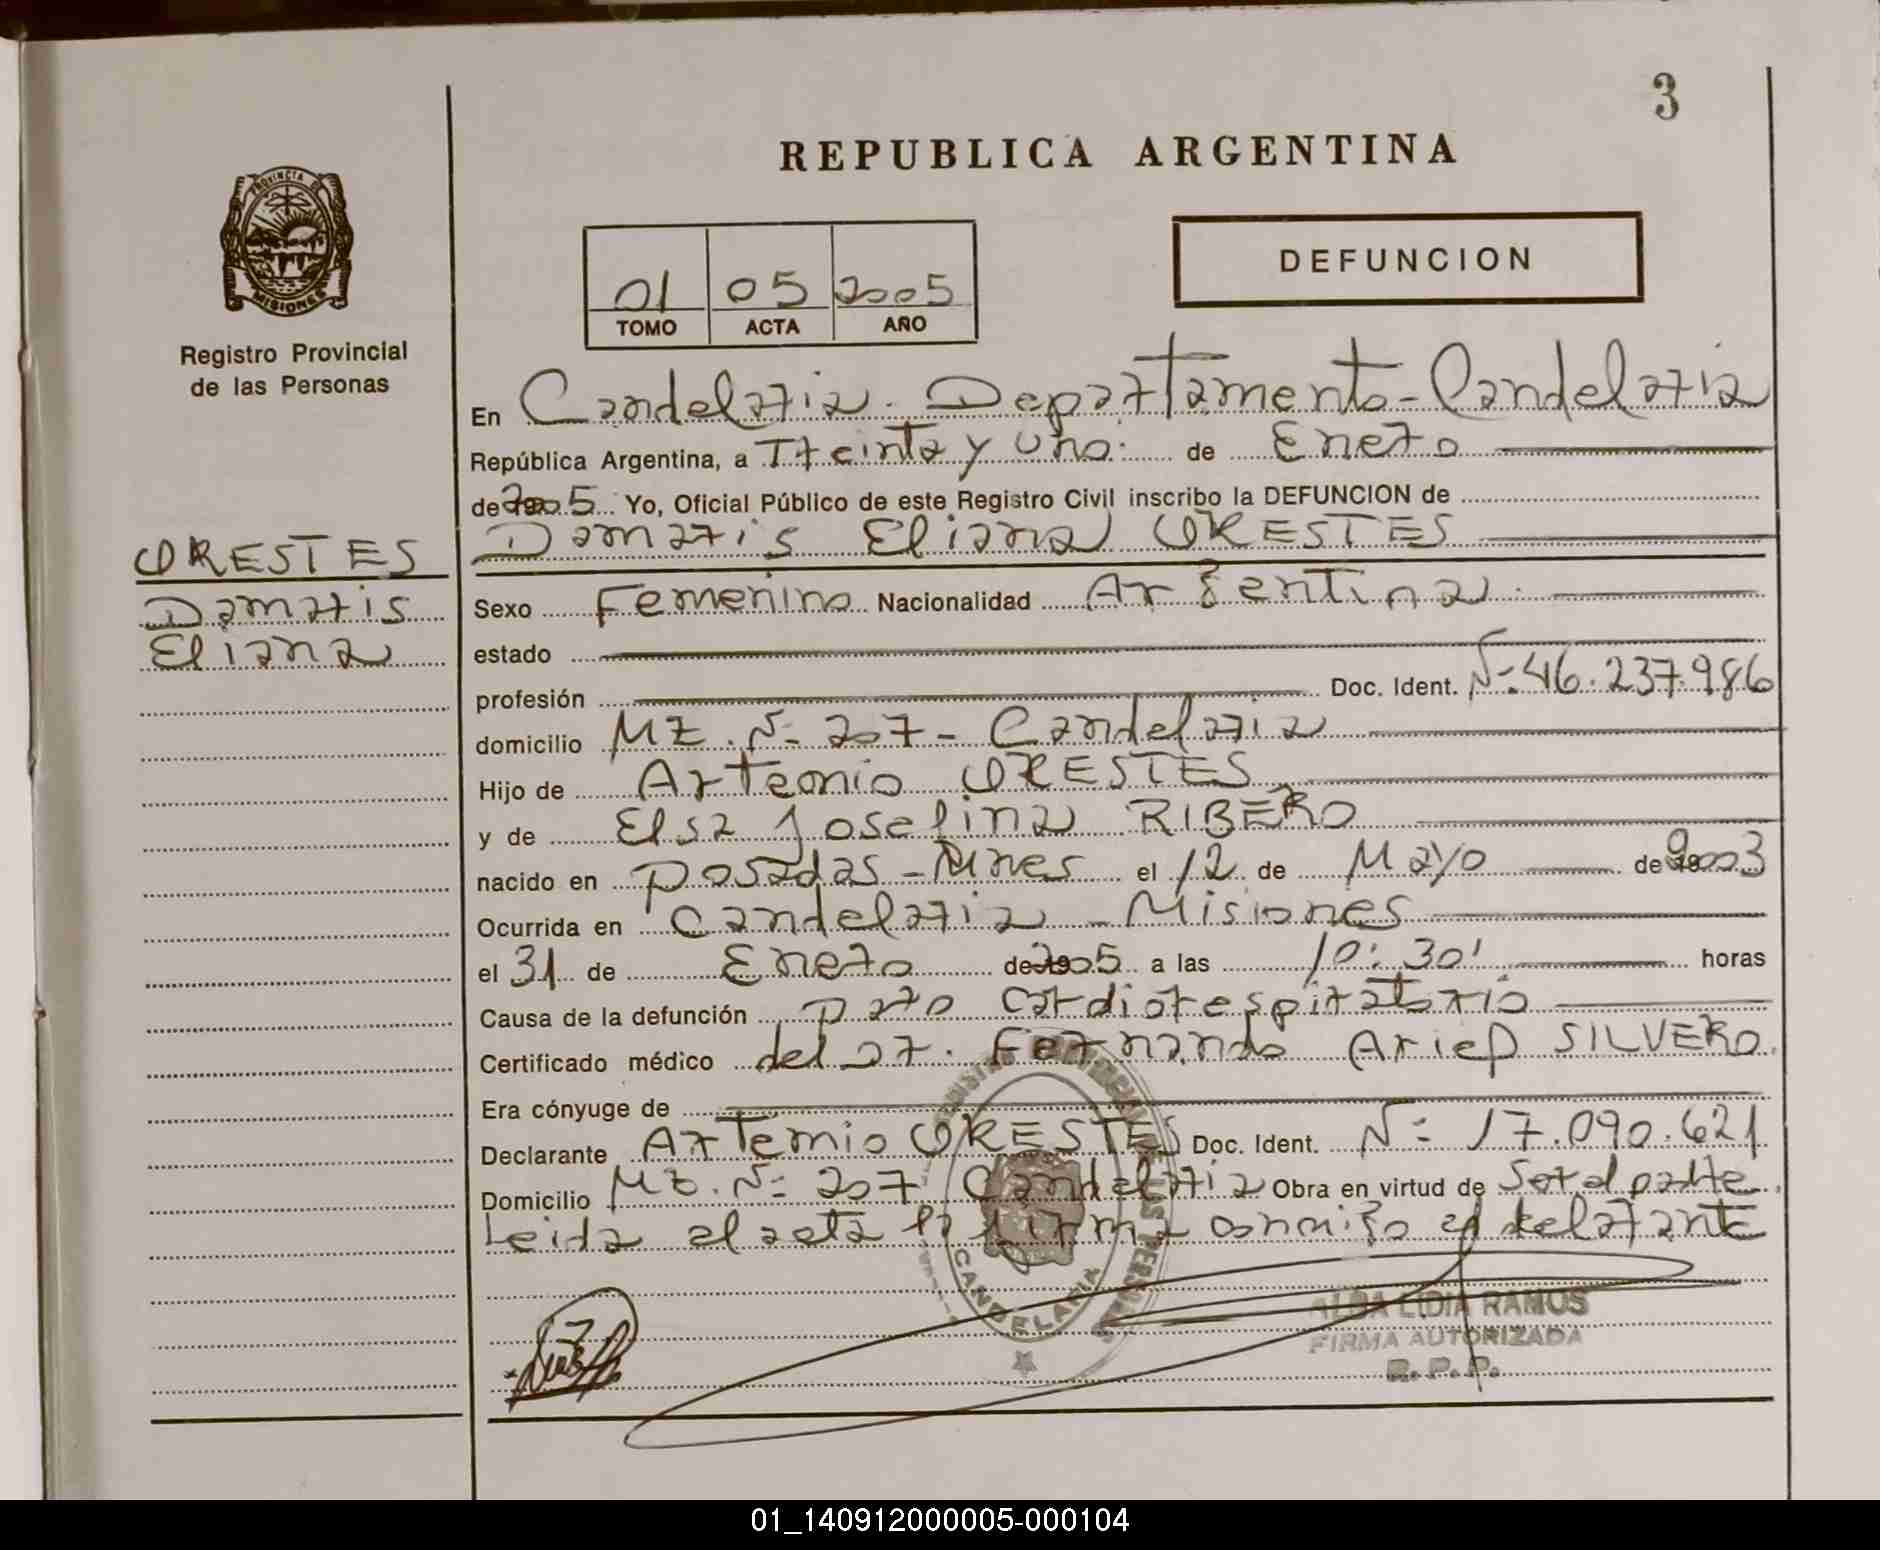 3
REPUBLICA ARGENTINA
PROVINCIA DE
MISIONES
Registro Provincial
de las Personas
01 05 2005
TOMO ACTA AÑO
DEFUNCION
En Candelaria. Departamento - Candelaria
República Argentina, a Treinta y uno. de Enero
de 2005 Yo, Oficial Público de este Registro Civil inscribo la DEFUNCION de
Damaris Eliana ORESTES
ORESTES
Damaris
Eliana
Sexo Femenino Nacionalidad Argentina
estado
profesión Doc. Ident. Nº 46.237.986
domicilio MZ. Nº 207 - Candelaria
Hijo de Artemio ORESTES
y de Elsa Josefina RIBERO
nacido en Posadas - Mnes el 12 de Mayo de 2003
Ocurrida en Candelaria - Misiones
el 31 de Enero de 2005 a las 10:30' horas
Causa de la defunción paro cardiorespiratorio
Certificado médico del Dr. Fernando Ariel SILVERO.
Era cónyuge de
Declarante Artemio ORESTES Doc. Ident. Nº 17.090.621
Domicilio MZ. Nº 207 Candelaria Obra en virtud de Ser el padre.
Leida el acta la firma conmigo el delarante
CANDELARIA
ALBA LIDIA RAMOS
FIRMA AUTORIZADA
R. P. P.
01_140912000005-000104